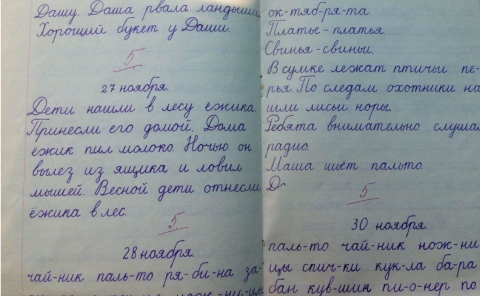 Дашу. Даша рвала ландыши.
Хороший букет у Даши.
5
27 ноября.
Дети нашли в лесу ёжика.
Принесли его домой. Дома
ёжик пил молоко. Ночью он
вылез из ящика и ловил
мышей. Весной дети отнесли
ёжика в лес.
5
28 ноября.
чай-ник паль-то ря-би-на за-
ок-тяб-ря-та
Платье-платья
Свинья-свиньи.
В сумке лежат птичьи пе-
рья. По следам охотники на-
шли лисьи норы.
Ребята внимательно слушал
радио.
Маша шьёт пальто.
Д
5
30 ноября.
паль-то чай-ник нож-ни-
цы спич-ки кук-ла ба-ра-
бан кув-шин пи-о-нер по